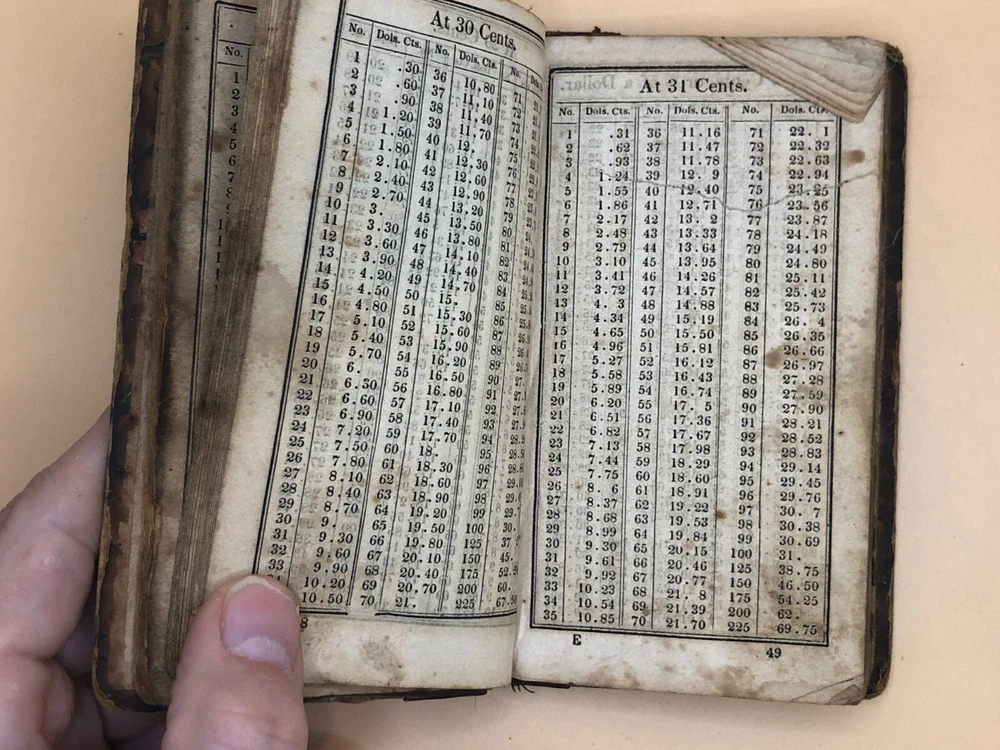 No.
1
2
3
4
5
6
7
8
At 30 Cents.
No. Dols. Cts. No. Dols. Cts. No. Dols.
1 .30 36 10.80 71
2 .60 37 11.10 72
3 .90 38 11.40 73
4 1.20 39 11.70 74
5 1.50 40 12. 75
6 1.80 41 12.30 76
7 2.10 42 12.60 77
8 2.40 43 12.90 78
9 2.70 44 13.20 79
10 3. 45 13.50 80
11 3.30 46 13.80 81
12 3.60 47 14.10 82
13 3.90 48 14.40 83
14 4.20 49 14.70 84
15 4.50 50 15. 85
16 4.80 51 15.30 86
17 5.10 52 15.60 87
18 5.40 53 15.90 88
19 5.70 54 16.20 89
20 6. 55 16.50 90 27.
21 6.30 56 16.80 91
22 6.60 57 17.10 92
23 6.90 58 17.40 93
24 7.20 59 17.70 94
25 7.50 60 18. 95
26 7.80 61 18.30 96
27 8.10 62 18.60 97
28 8.40 63 18.90 98
29 8.70 64 19.20 99
30 9. 65 19.50 100 30.
31 9.30 66 19.80 125 37
32 9.60 67 20.10 150 45.
33 9.90 68 20.40 175 52.50
10.20 69 20.70 200 60.
10.50 70 21. 225 67.50
8
At 31 Cents.
No. Dols. Cts. No. Dols. Cts. No. Dols. Cts.
1 .31 36 11.16 71 22. 1
2 .62 37 11.47 72 22.32
3 .93 38 11.78 73 22.63
4 1.24 39 12. 9 74 22.94
5 1.55 40 12.40 75 23.25
6 1.86 41 12.71 76 23.56
7 2.17 42 13. 2 77 23.87
8 2.48 43 13.33 78 24.18
9 2.79 44 13.64 79 24.49
10 3.10 45 13.95 80 24.80
11 3.41 46 14.26 81 25.11
12 3.72 47 14.57 82 25.42
13 4. 3 48 14.88 83 25.73
14 4.34 49 15.19 84 26. 4
15 4.65 50 15.50 85 26.35
16 4.96 51 15.81 86 26.66
17 5.27 52 16.12 87 26.97
18 5.58 53 16.43 88 27.28
19 5.89 54 16.74 89 27.59
20 6.20 55 17. 5 90 27.90
21 6.51 56 17.36 91 28.21
22 6.82 57 17.67 92 28.52
23 7.13 58 17.98 93 28.83
24 7.44 59 18.29 94 29.14
25 7.75 60 18.60 95 29.45
26 8. 6 61 18.91 96 29.76
27 8.37 62 19.22 97 30. 7
28 8.68 63 19.53 98 30.38
29 8.99 64 19.84 99 30.69
30 9.30 65 20.15 100 31.
31 9.61 66 20.46 125 38.75
32 9.92 67 20.77 150 46.50
33 10.23 68 21. 8 175 54.25
34 10.54 69 21.39 200 62.
35 10.85 70 21.70 225 69.75
E 49